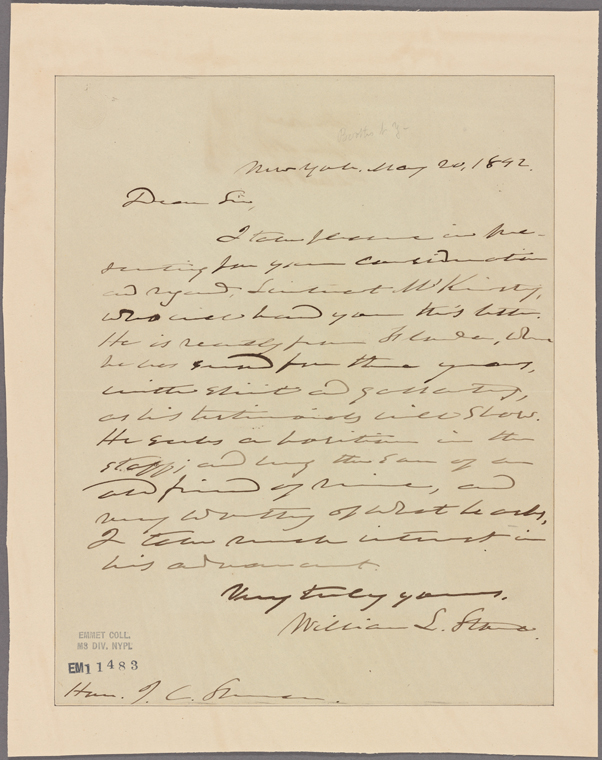 New York, May 20, 1842.
Dear Sir,
I take pleasure in pre-
senting for your consideration
and regard, Lieutenant McKinstry,
who will hand you this letter.
He is recently from Florida, where
he has served for three years,
with spirit and gallantry,
as his testimonials will show.
He seeks a position in the
staff; and being the son of an
old friend of mine, and
very worthy of what he asks,
I take much interest in
his advancement.
Very truly yours,
William L. Stone.
Hon. J. C. Spencer.
EMMET COLL.
MS DIV. NYPL
EM11483